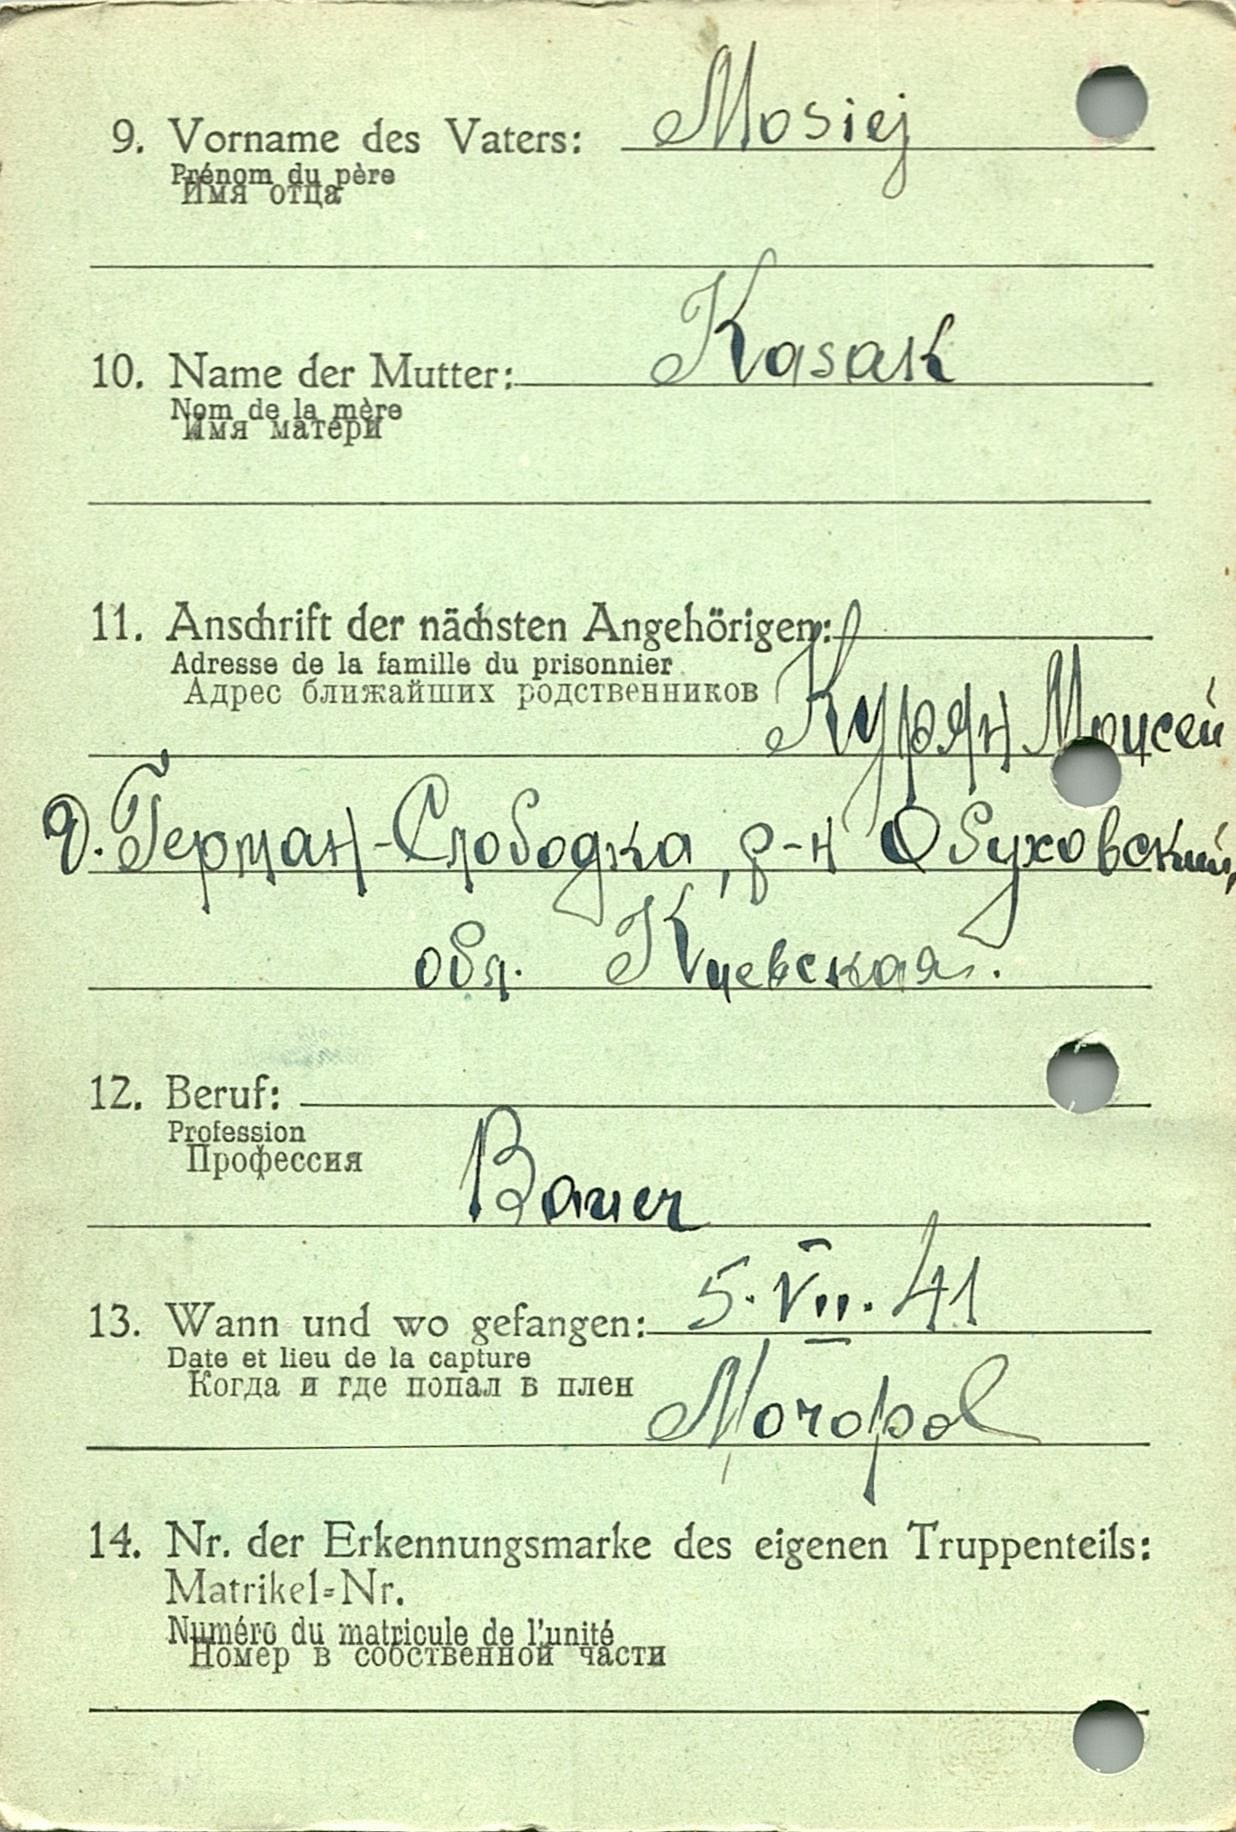 9. Vorname des Vaters: Mosiej
Prénom du père
Имя отца
10. Name der Mutter: Kasak
Nom de la mère
Имя матери
11. Anschrift der nächsten Angehörigen:
Adresse de la famille du prisonnier
Адрес ближайших родственников Курян Моисей
д. Герман-Слободка, р-н Обуховский,
обл. Киевская.
12. Beruf:
Profession
Профессия
Bauer
13. Wann und wo gefangen: 5. VII. 41
Date et lieu de la capture
Когда и где попал в плен
14. Nr. der Erkennungsmarke des eigenen Truppenteils:
Matrikel=Nr.
Numéro du matricule de l'unité
Номер в собственной части